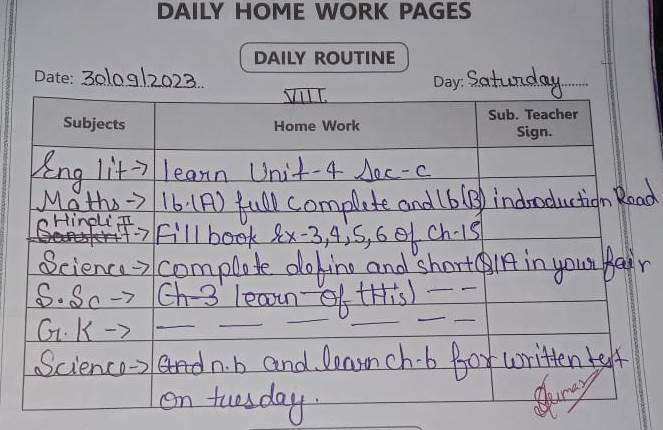 DAILY HOME WORK PAGES
DAILY ROUTINE
Date: 30/09/2023.. Day: Saturday......
VIII
Subjects Home Work Sub. Teacher Sign.
Eng lit → learn Unit-4 Sec-C
Maths → 16.(A) full complete and 16(B) indroduction Read
Hindi II
Sanskrit → Fill book Ex-3,4,5,6 of Ch-15
Science → complete define and short Q/A in your fair
S.Sc → Ch-3 learn of (His) — —
G.K → — — — — — —
Science → and n.b and learn ch-6 for written test
on tuesday.